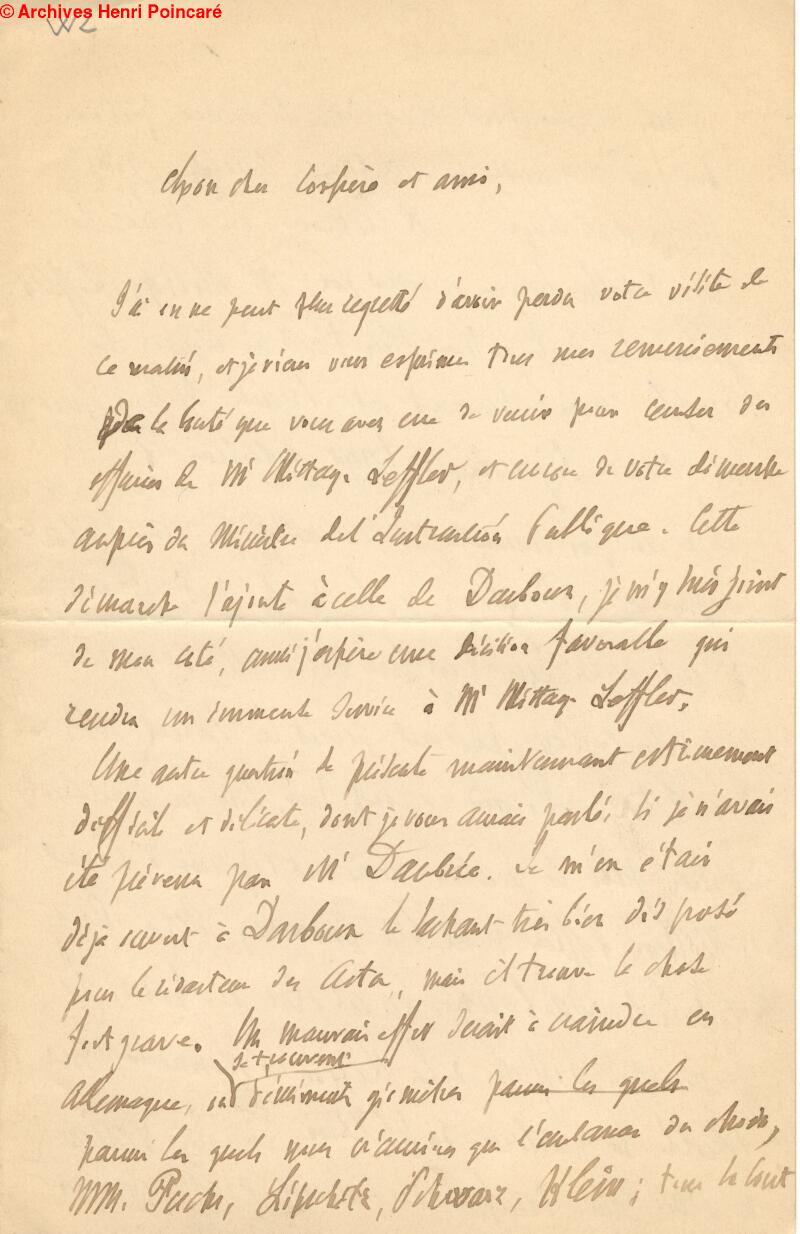 © Archives Henri Poincaré
Mon cher Confrère et ami,
J'ai on ne peut plus regretté d'avoir perdu votre visite de
ce matin, et je viens vous exprimer tous mes remerciements
de la bonté que vous avez eue de venir pour causer des
affaires de Mr Mittag Leffler, et encore de votre démarche
auprès du Ministre de l'Instruction Publique. Cette
démarche s'ajoute à celle de Darboux, je m'y suis joint
de mon côté, aussi j'espère une décision favorable qui
rendra un immense service à Mr Mittag Leffler.
Une autre question se présente maintenant extrêmement
difficile et délicate, dont je vous aurais parlé, si je n'avais
été prévenu par Mr Daubrée. Je m'en étais
déjà ouvert à Darboux le sachant très bien disposé
pour le rédacteur des Acta, mais il trouve la chose
fort grave. Un mauvais effet serait à craindre en
se trouvent
Allemagne, où d'éminents géomètres parmi les quels
parmi les quels nous n'aurions que l'embarras du choix,
MM. Fuchs, Lipschitz, Schwarz, Klein; tous se sont